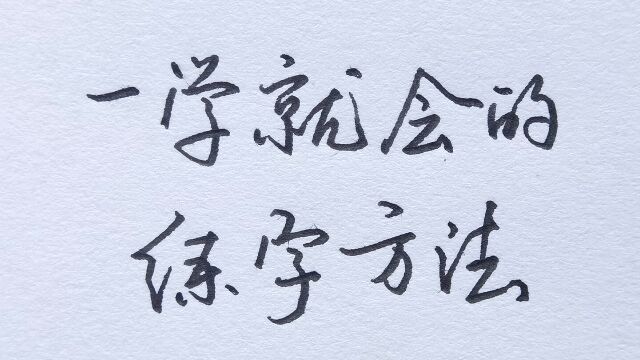 一学就会的
练字方法